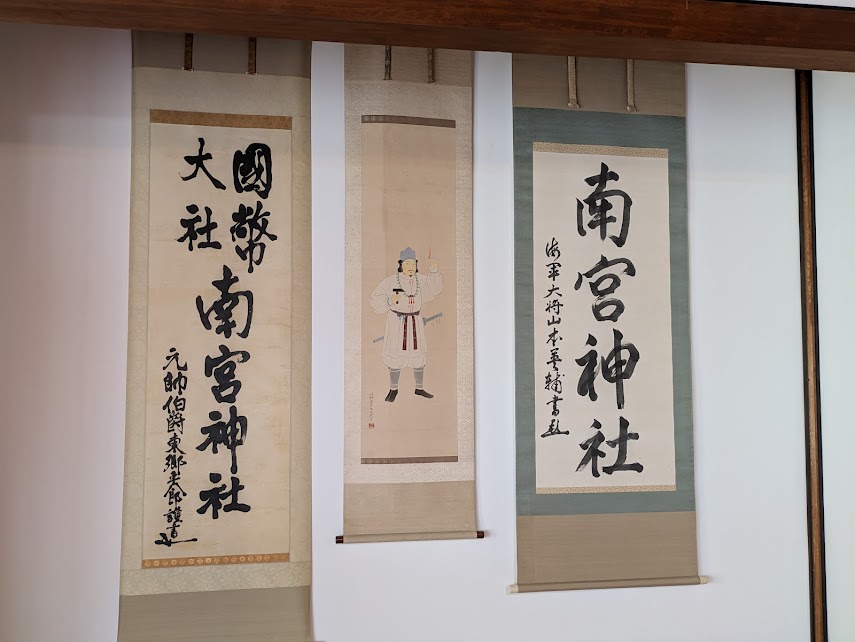 國幣
大社
南宮神社
元帥伯爵東郷平八郎謹書
南宮神社
海軍大将山本英輔書